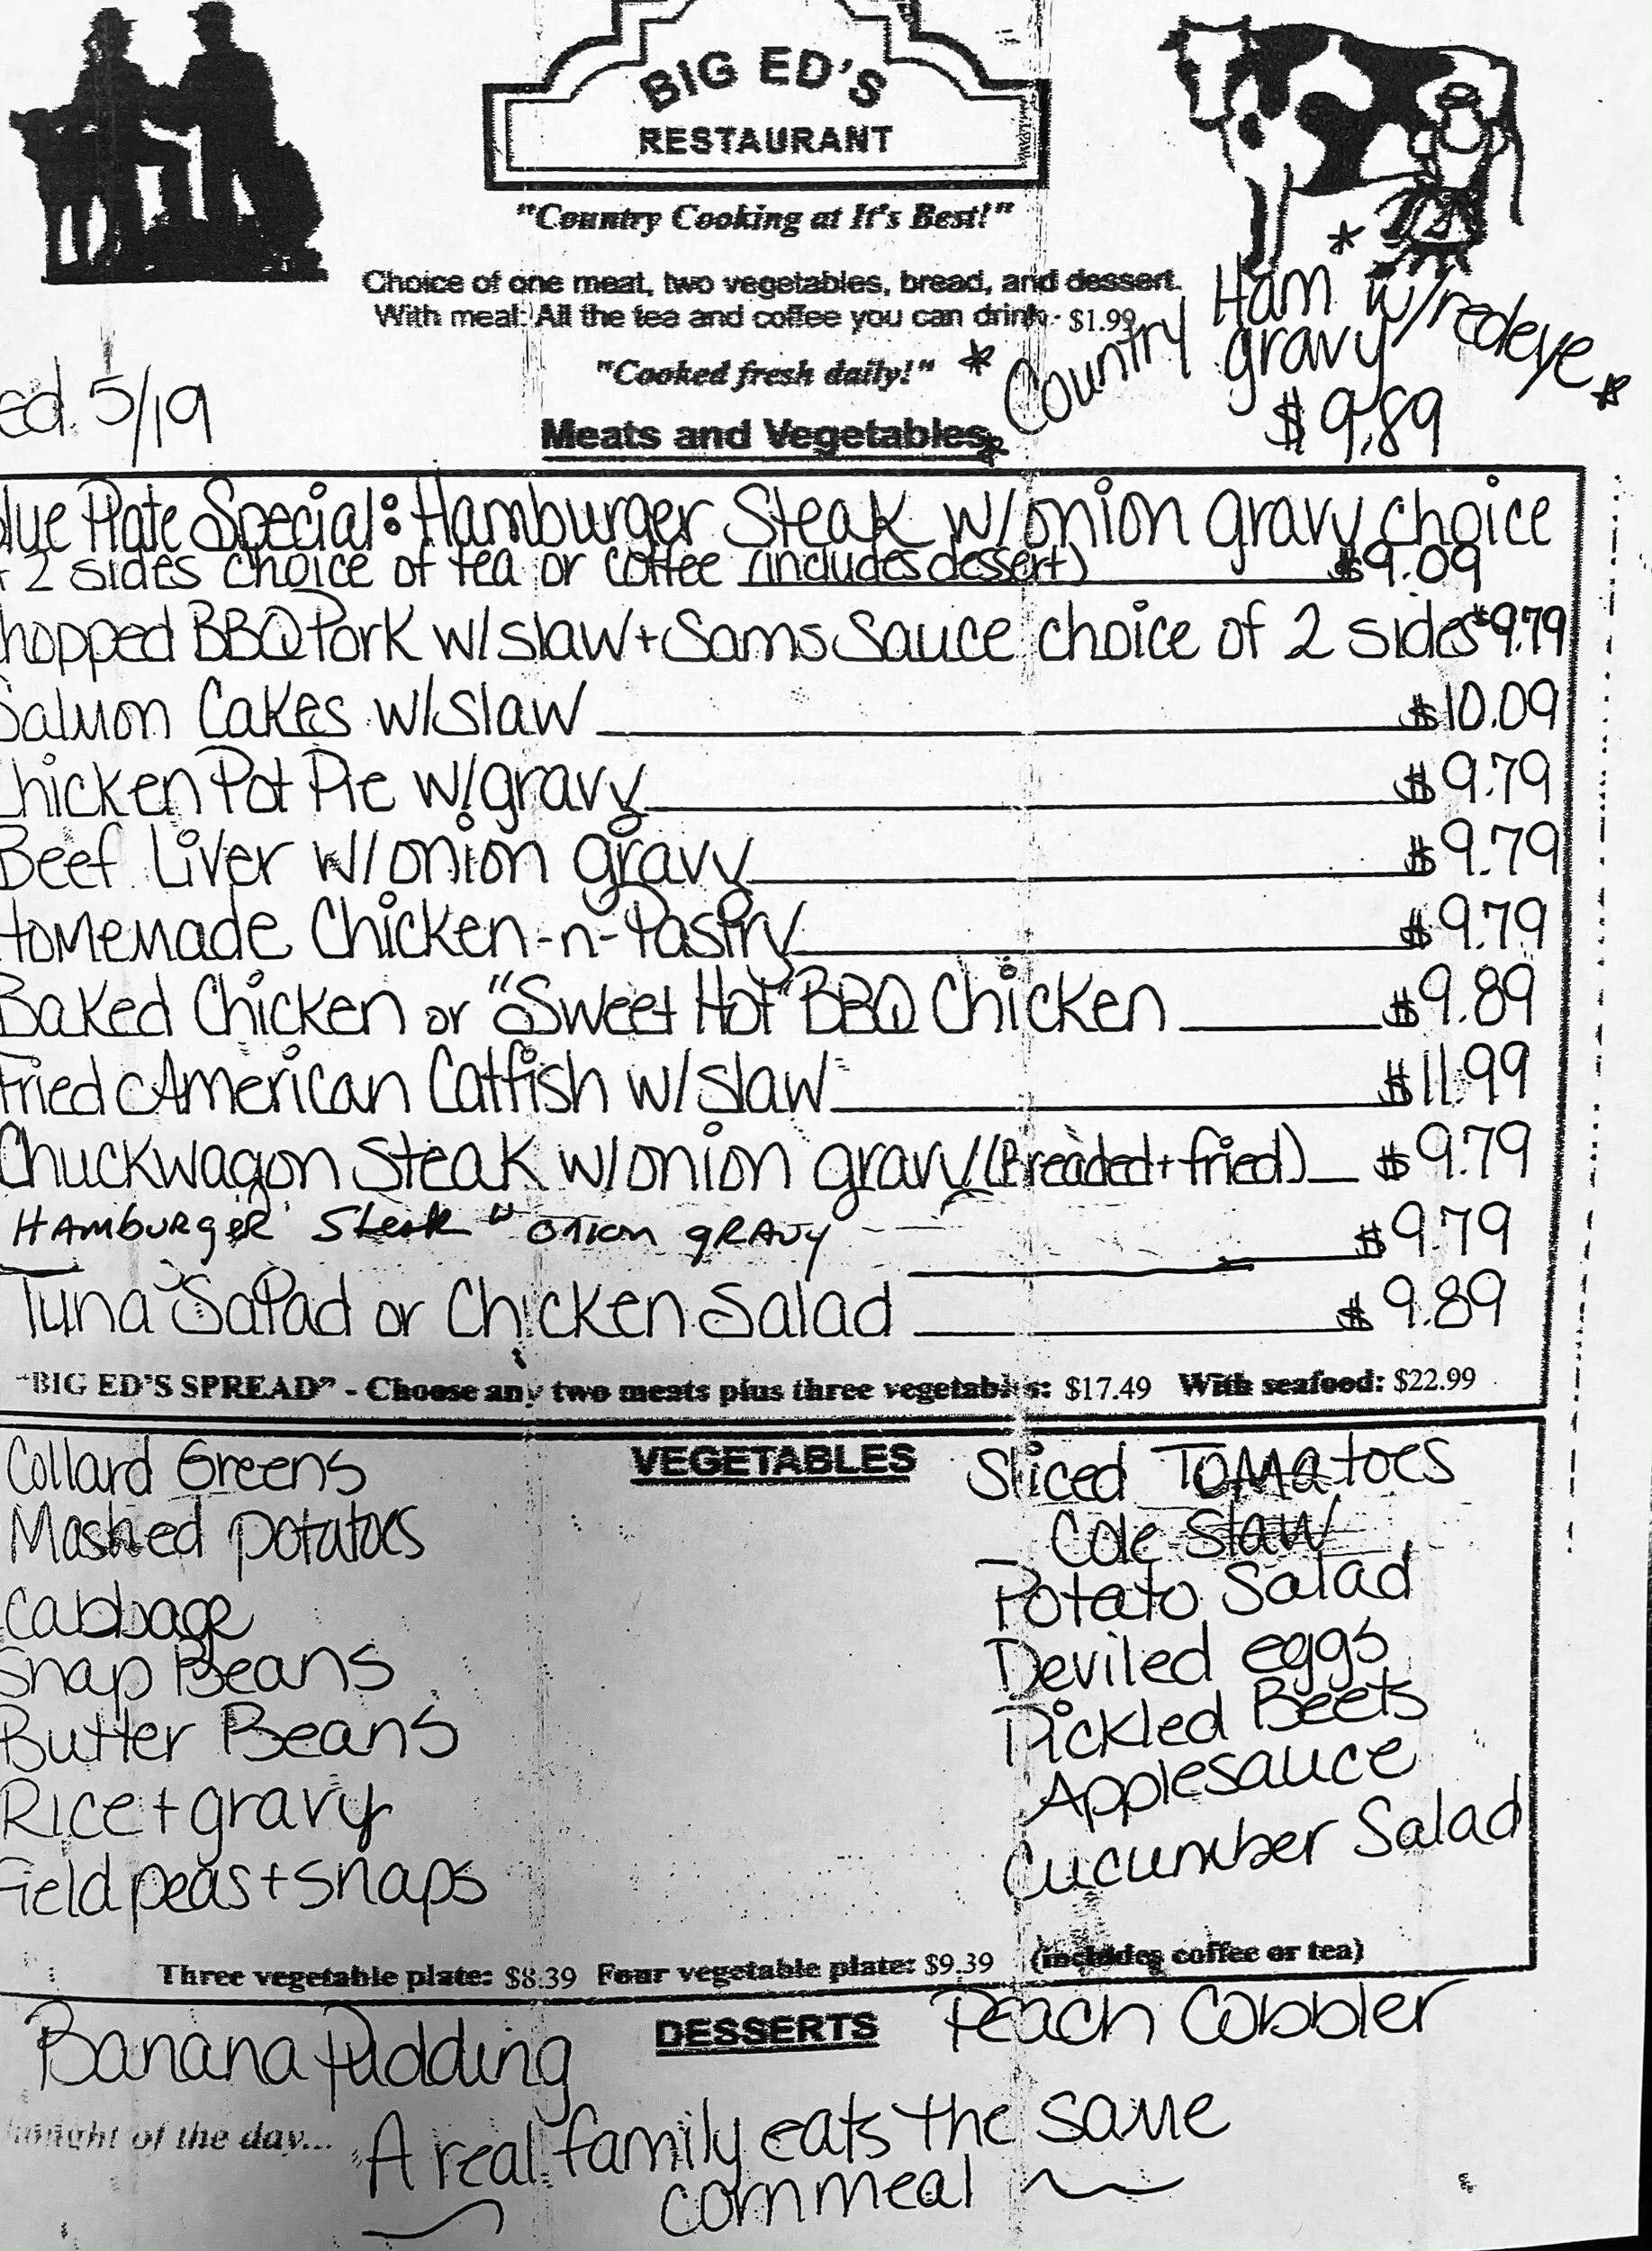 BIG ED'S
RESTAURANT
"Country Cooking at It's Best!"
Choice of one meat, two vegetables, bread, and dessert.
With meal: All the tea and coffee you can drink · $1.99
"Cooked fresh daily!"
*Country Ham w/redeye gravy*
$9.89
ed. 5/19
Meats and Vegetables
lue Plate Special: Hamburger Steak w/onion gravy choice
2 sides choice of tea or coffee (includes dessert) $9.09
hopped BBQ Pork w/slaw+Sams Sauce choice of 2 sides $9.79
Salmon Cakes w/slaw $10.09
hicken Pot Pie w/gravy $9.79
Beef Liver w/onion gravy $9.79
Homemade Chicken-n-Pastry $9.79
Baked Chicken or "Sweet Hot" BBQ Chicken $9.89
Fried American Catfish w/slaw $11.99
Chuckwagon Steak w/onion gravy (Breaded+fried) $9.79
HAmbURgER Steak w onion gRAvy $9.79
Tuna Salad or Chicken Salad $9.89
"BIG ED'S SPREAD" - Choose any two meats plus three vegetables: $17.49 With seafood: $22.99
VEGETABLES
Collard Greens
Mashed potatoes
Cabbage
Snap Beans
Butter Beans
Rice+gravy
Field peas+snaps
Sliced Tomatoes
Cole Slaw
Potato Salad
Deviled eggs
Pickled Beets
Applesauce
Cucumber Salad
Three vegetable plate: $8.39 Four vegetable plate: $9.39 (includes coffee or tea)
DESSERTS
Banana Pudding
Peach Cobbler
of the day...
A real family eats the same
cornmeal